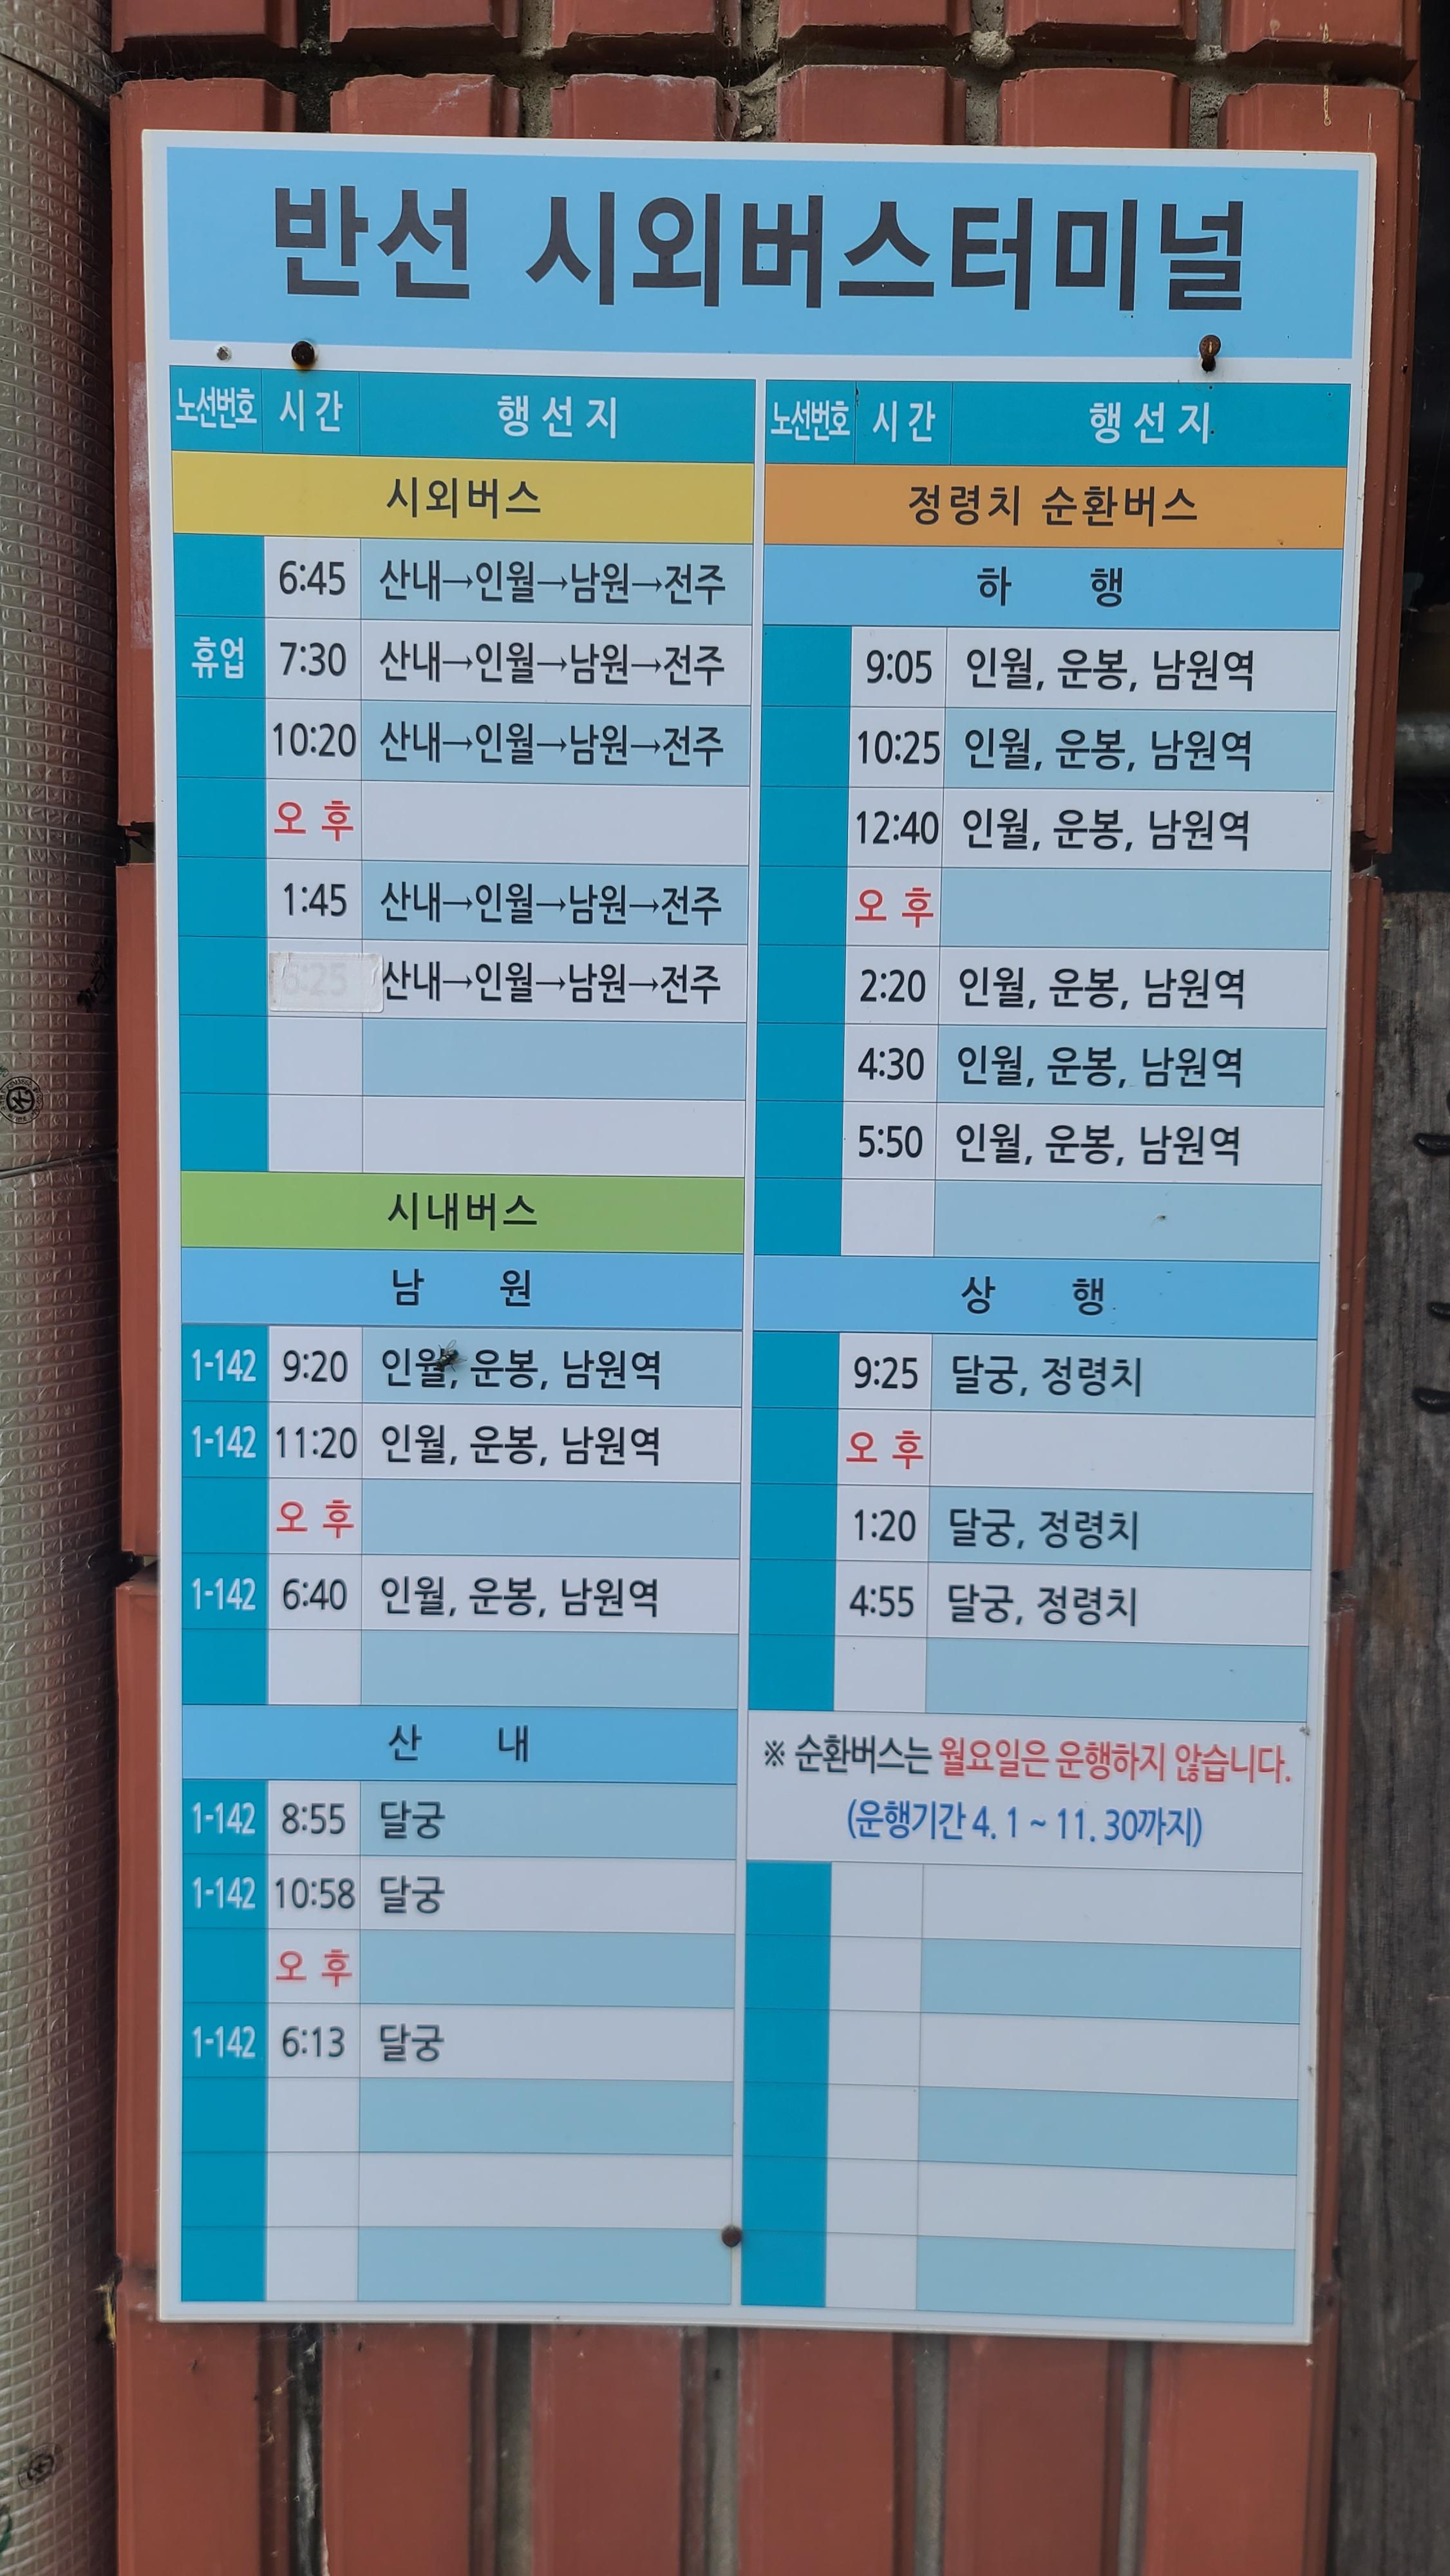 반선 시외버스터미널
노선번호 시간 행선지
시외버스
6:45 산내→인월→남원→전주
휴업 7:30 산내→인월→남원→전주
10:20 산내→인월→남원→전주
오 후
1:45 산내→인월→남원→전주
6:25 산내→인월→남원→전주
시내버스
남 원
1-142 9:20 인월, 운봉, 남원역
1-142 11:20 인월, 운봉, 남원역
오 후
1-142 6:40 인월, 운봉, 남원역
산 내
1-142 8:55 달궁
1-142 10:58 달궁
오 후
1-142 6:13 달궁
노선번호 시간 행선지
정령치 순환버스
하 행
9:05 인월, 운봉, 남원역
10:25 인월, 운봉, 남원역
12:40 인월, 운봉, 남원역
오 후
2:20 인월, 운봉, 남원역
4:30 인월, 운봉, 남원역
5:50 인월, 운봉, 남원역
상 행
9:25 달궁, 정령치
오 후
1:20 달궁, 정령치
4:55 달궁, 정령치
※ 순환버스는 월요일은 운행하지 않습니다.
(운행기간 4. 1 ~ 11. 30까지)